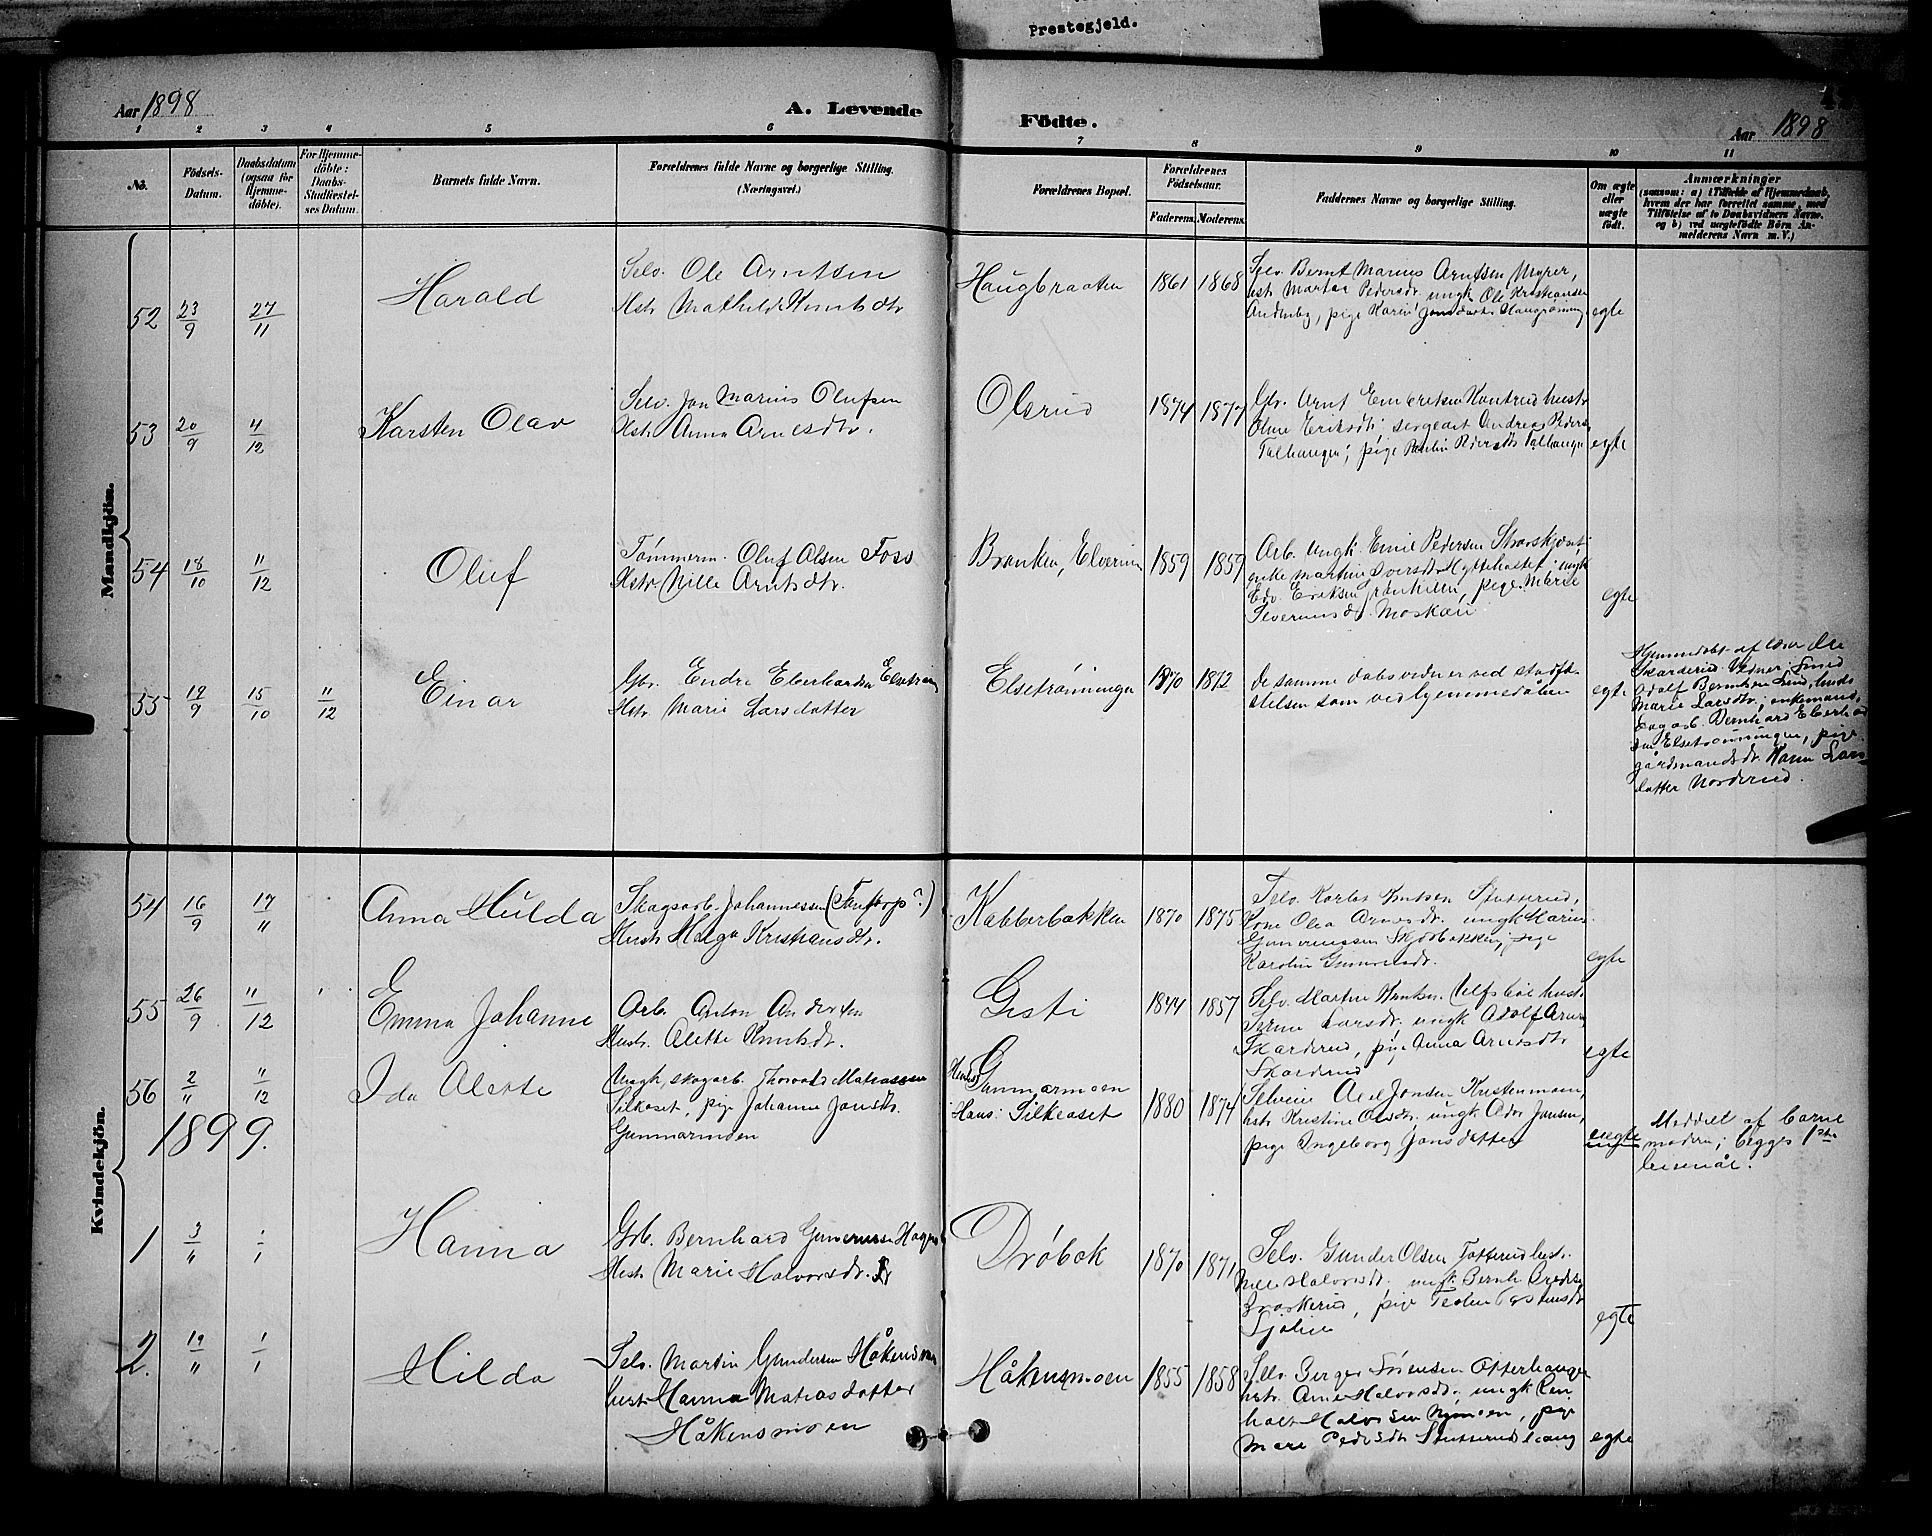 Prestegjeld.
Aar 1898
A. Levende
Födte.
Aar 1898
1 2 3 4 5 6 7 8 9 10 11
No.
Födsels-Datum.
Daabsdatum (ogsaa for Hjemme-döbte).
For Hjemme-döbte: Daabs-Stadfæstel-ses Datum.
Barnets fulde Navn.
Forældrenes fulde Navne og borgerlige Stilling.
(Næringsvei.)
Forældrenes Bopæl.
Forældrenes Födselsaar.
Faderens. Moderens.
Faddernes Navne og borgerlige Stilling.
Om ægte eller uægte födt.
Anmærkninger
(saasom: a) i Tilfælde af Hjemmedaab,
hvem der har forrettet samme, med
Tilföielse af to Daabsvidners Navne.
og b) ved uægtefödte Börn An-
melderens Navn m. V.)
Mandkjön.
52 23/9 27/11 Harald
Selv. Ole Arntsen
Hstr Mathilde Knutsdtr
Haugbraaten 1861 1868
Selv Bernt Marius Arntsen Myrer,
hst. Martea Pedersdtr ungk Ole Kristiansen
pige Karin
egte
53 20/9 4/12 Karsten Olav
Selv. Jon Marius Olufsen
Hstr Anna Arnesdtr.
Olerud 1874 1877
Gbr. Arnt Embretsen hustr
Eriksdtr sergeant Andreas Peders
Talhaugen, pige Pedersdtr Talhaugen
egte
54 18/10 11/12 Oluf
Tømmerm. Oluf Olsen Foss
Hstr. Nille Arntsdtr.
Branken, Elverum 1859 1859
Arb. ungk. Emil Pedersen
enke Martin Iversdtr ungk
Edv. Eriksen pige Marie
Severinsdtr. Moskau
egte
55 12/9 15/10 11/12 Einar
Gbr. Endre Eberhardsen
Hstr Marie Larsdatter
Elsetrønningen 1870 1872
De samme dabsvidner ved stadfæ-
stelsen som ved hjemmedåben
egte
Hjemmedøbt af lærer Ole
Skarderud. Vidner: Smed
Adolf Bernhsen Lund, hustr
Marie Larsdtr; enkemand,
Dagarb. Bernhard Eberhard
sen Elsetrønningen, pige
gårdmandsdtr. Karen Lars
datter Norderud.
Kvindekjön.
54 16/9 17/11 Anna Hulda
Skogsarb. Johannessen (Torp?)
Hustr Helga Kristiansdtr.
Kabberbakken 1870 1875
Selv. Karl Knutsen
Kone Olea Arnesdtr. ungk Marius
Guneriussen pige
Karoline
egte
55 26/9 11/12 Emma Johanne
Arb. Anton Andersen
Hustr. Alette Knutsdtr.
Gisti 1844 1857
Selv. Martin Knutsen hustr.
Larsdtr. ungk Adolf Arnes
Skarderud, pige Anna Arnesdtr
Skarderud
egte
56 2/11 11/12 Ida Alette
Ungk, skogarb. Thorvald Mathiassen
Silkoset, pige Johanne Jonsdtr.
Gunnarmoen
Hendes Gunnarmoen
Hans: Silkeoset 1880 1874
Selveier Axel Jonsen Kristenmoen,
hstr Kristine Olsdtr, ungk Jonsen,
pige Ingeborg Jonsdatter
uegte
Meddelt af barne
moderen; begges 1ste
leiermål.
1899.
1 3/11 1/1 Hanna
Gbr. Bernhard Gunerius
Hustr Marie Halvorsdtr.
Drøbak 1870 1871
Selv. Gunder Olsen hustr.
Halvorsdtr. ungk Bernh
pige
Sjølie
egte
2. 19/11 1/1 Hilda
Selv. Martin Gundersen Håkensmoen
hustr Hanna Matiasdatter
Håkensmoen
Håkensmoen 1855 1858
Selv Berger Sørensen Otterhaugen
hstr. Anne Halvorsdtr. ungk Rein
holt Halvorsen Nymoen, pige
Mari Pedersdtr
egte